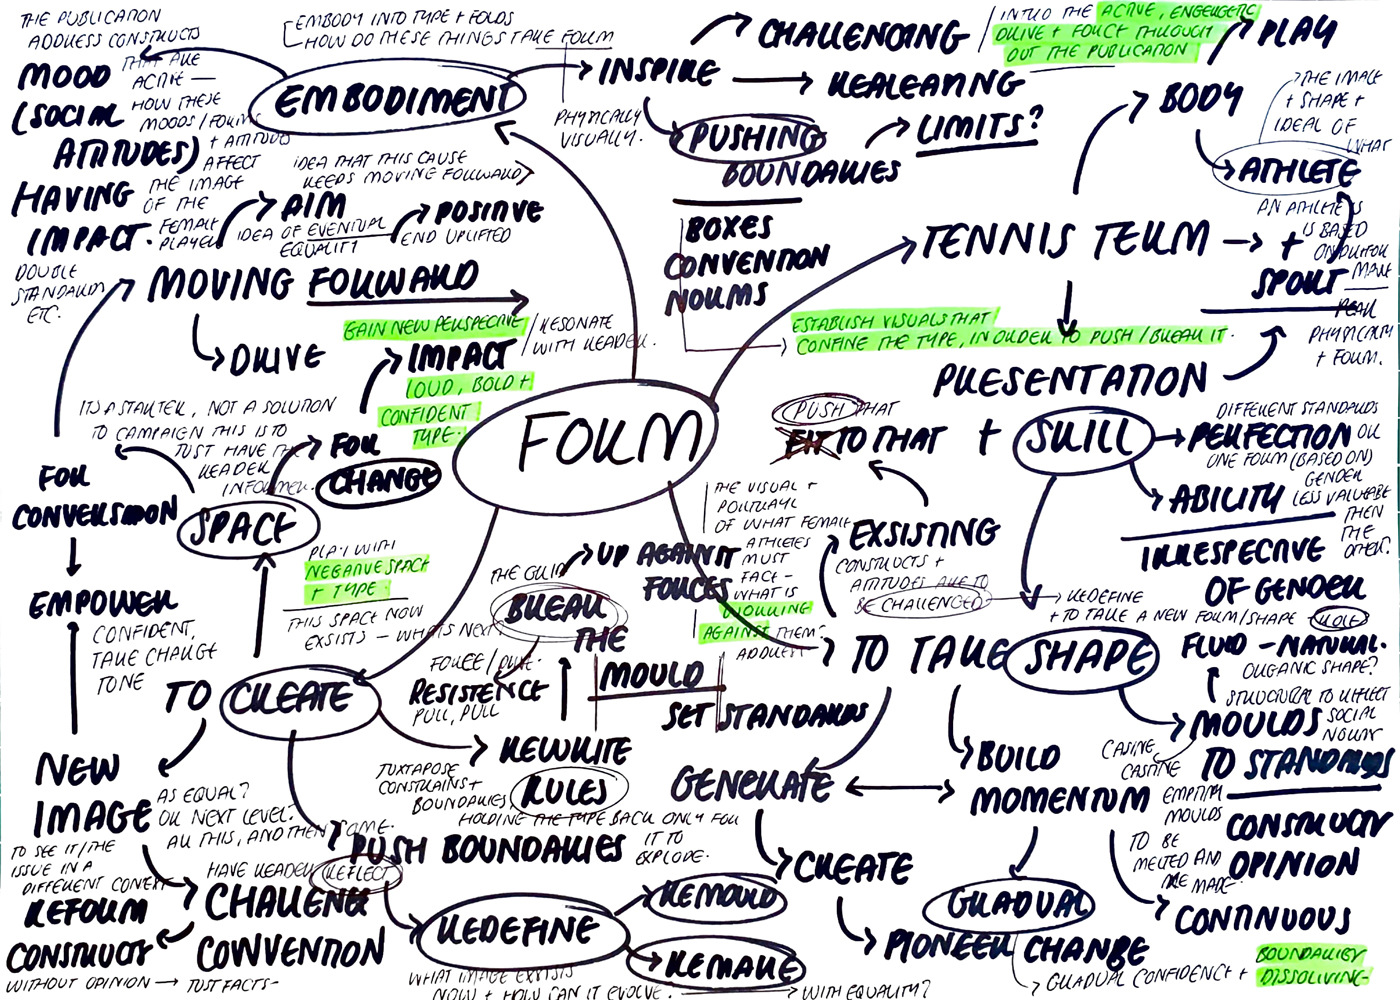 THE PUBLICATION
ADDRESS CONSTRUCTS
THAT ARE
ACTIVE —
HOW THESE
MOODS / FORMS
+ ATTITUDES
AFFECT
THE IMAGE
OF THE
FEMALE
PLAYER
MOOD
(SOCIAL
ATTITUDES)
HAVING
IMPACT.
DOUBLE
STANDARDS
ETC.
EMBODY INTO TYPE + FOLDS
HOW DO THESE THINGS TAKE FORM
PHYSICALLY
VISUALLY.
EMBODIMENT
INSPIRE
CHALLENGING
INTRO THE ACTIVE, ENERGETIC
DRIVE + FORCE THROUGH
OUT THE PUBLICATION
REALEASING
LIMITS?
PUSHING
BOUNDARIES
BOXES
CONVENTION
NORMS
ESTABLISH VISUALS THAT
CONFINE THE TYPE, IN ORDER TO PUSH / BREAK IT.
PLAY
BODY
THE IMAGE
+ SHAPE +
IDEAL OF
WHAT
ATHLETE
AN ATHLETE IS
IS BASED
ON
PEAK
PHYSICALITY
+ FORM.
TENNIS TERM
+
SPORT
PRESENTATION
IDEA THAT THIS CAUSE
KEEPS MOVING FORWARD
AIM
IDEA OF EVENTUAL
EQUALITY
POSITIVE
END UPLIFTED
MOVING FORWARD
DRIVE
GAIN NEW PERSPECTIVE
/ RESONATE
WITH READER.
IMPACT
LOUD, BOLD +
CONFIDENT
TYPE.
FOR
CHANGE
ITS A STARTER, NOT A SOLUTION
TO CAMPAIGN THIS IS TO
JUST HAVE THE
READER
INFORMED.
SPACE
FOR
CONVERSION
EMPOWER
CONFIDENT,
TAKE CHARGE
TONE
PLAY WITH
NEGATIVE SPACE
+ TYPE
THIS SPACE NOW
EXSISTS — WHATS NEXT
FORM
PUSH THAT
FIT TO THAT
+ SKILL
PERFECTION
DIFFERENT STANDARDS
OR
ONE FORM (BASED ON)
GENDER
LESS VALUABLE
THEN
THE
OTHER.
ABILITY
IRRESPECTIVE
OF GENDER
EXSISTING
CONSTRUCTS +
ATTITUDES ARE TO
BE CHALLENGED
REDEFINE
+ TO TAKE A NEW FORM/SHAPE
ROLE
THE VISUAL +
PORTRAYL
OF WHAT FEMALE
ATHLETES
MUST
FACE —
WHAT IS
WORKING
AGAINST THEM?
ADDRESS
UP AGAINST
FORCES
THE GUID
BREAK
THE
MOULD
SET STANDARDS
FORCE / DRIVE.
RESISTENCE
PULL, PULL
REWRITE
RULES
JUXTAPOSE
CONSTRAINS +
BOUNDARIES
HOLDING THE TYPE BACK ONLY FOR
IT TO
EXPLODE.
TO CREATE
NEW
IMAGE
AS EQUAL?
OR NEXT LEVEL?
ALL THIS, AND THEN SOME.
TO SEE IT/THE
ISSUE IN A
DIFFERENT CONTEXT
REFORM
CONSTRUCTS
WITHOUT OPINION → JUST FACTS —
HAVE READER
REFLECT
CHALLENGE
CONVENTION
PUSH BOUNDARIES
REDEFINE
WHAT IMAGE EXSISTS
NOW + HOW CAN IT EVOLVE.
WITH EQUALITY?
REMOULD
REMAKE
TO TAKE SHAPE
FLUID — NATURAL.
ORGANIC SHAPE?
STRUCTURAL TO REFLECT
SOCIAL
NORMS
MOULDS
TO STANDARDS
CASTING
CASTING
EMPTY
MOULDS
TO BE
MELTED AND
RE MADE.
CONSTRUCT
OPINION
CONTINUOUS
GENERATE
BUILD
MOMENTUM
CREATE
GRADUAL
PIONEER CHANGE
GRADUAL CONFIDENCE +
BOUNDARIES
DISSOLIVING —